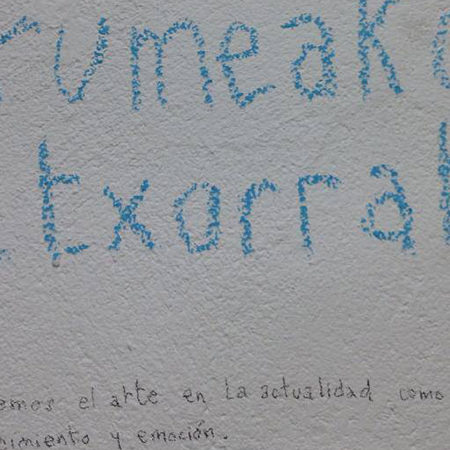 rumeak
txorra
emos el arte en la actualidad como
imiento y emoción.